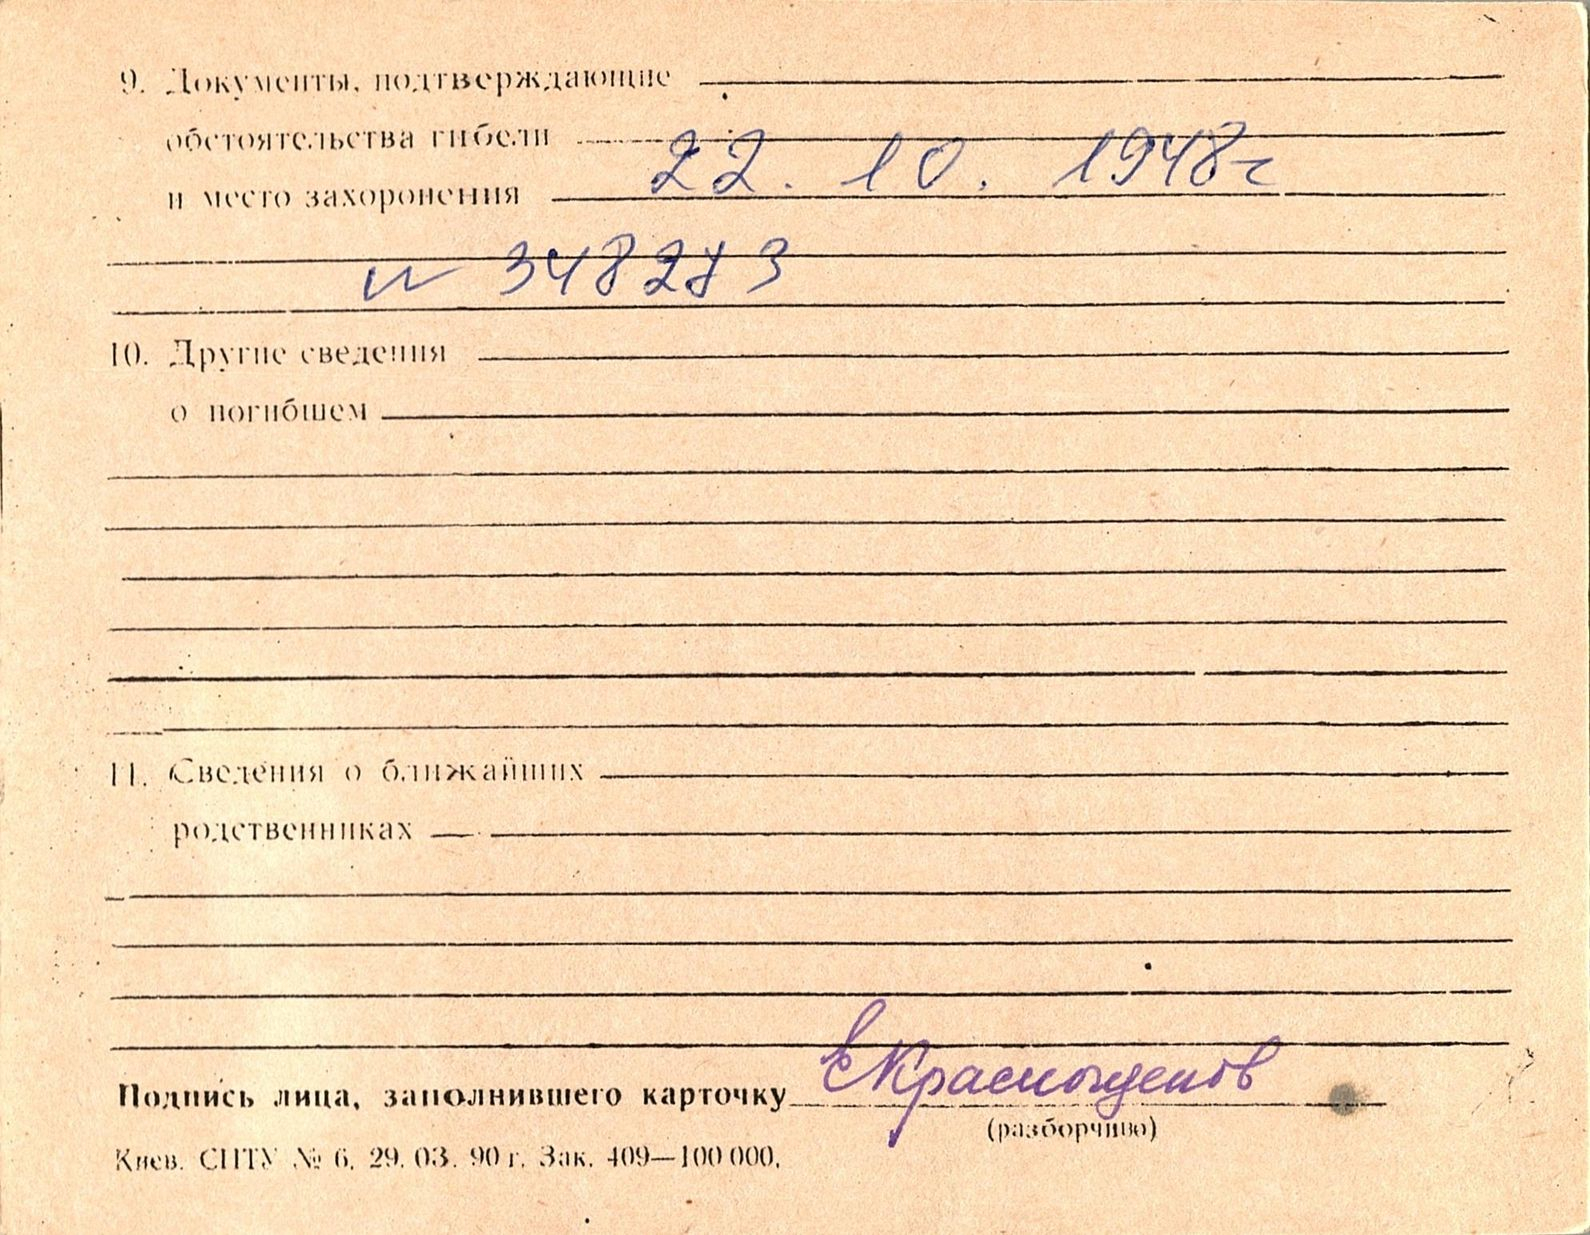 9. Документы, подтверждающие
обстоятельства гибели
и место захоронения 22. 10. 1948г
и 348273
10. Другие сведения
о погибшем
11. Сведения о ближайших
родственниках
Подпись лица, заполнившего карточку
(разборчиво)
Киев. СПТУ № 6. 29. 03. 90 г. Зак. 409—100 000.